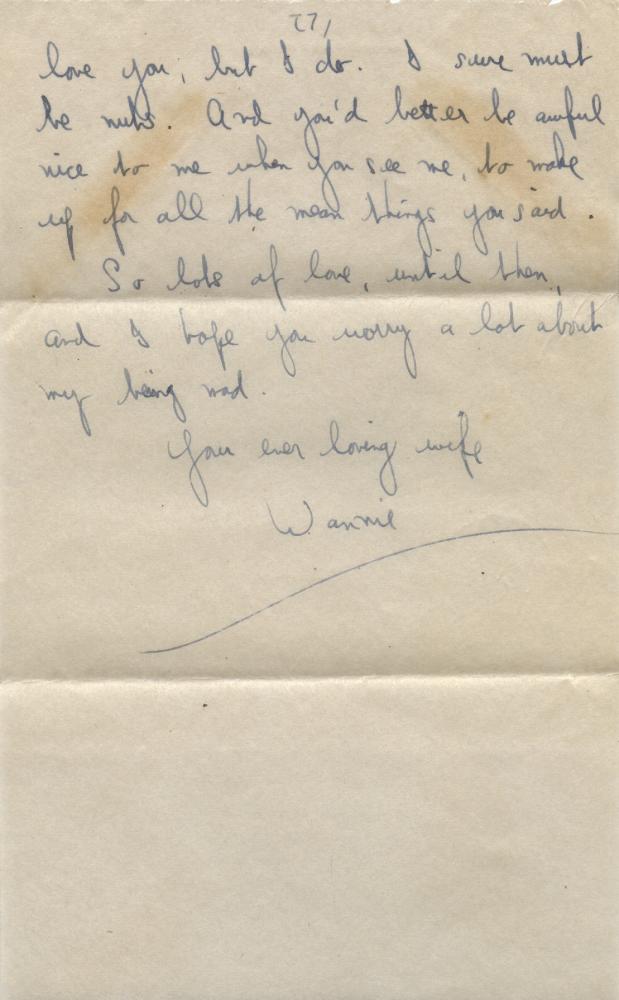 [7]
love you, but I do. I sure must
be nuts. And you'd better be awful
nice to me when you see me, to make
up for all the mean things you said.
So lots of love, until then,
and I hope you worry a lot about
my being mad.
Your ever loving wife
Wannie